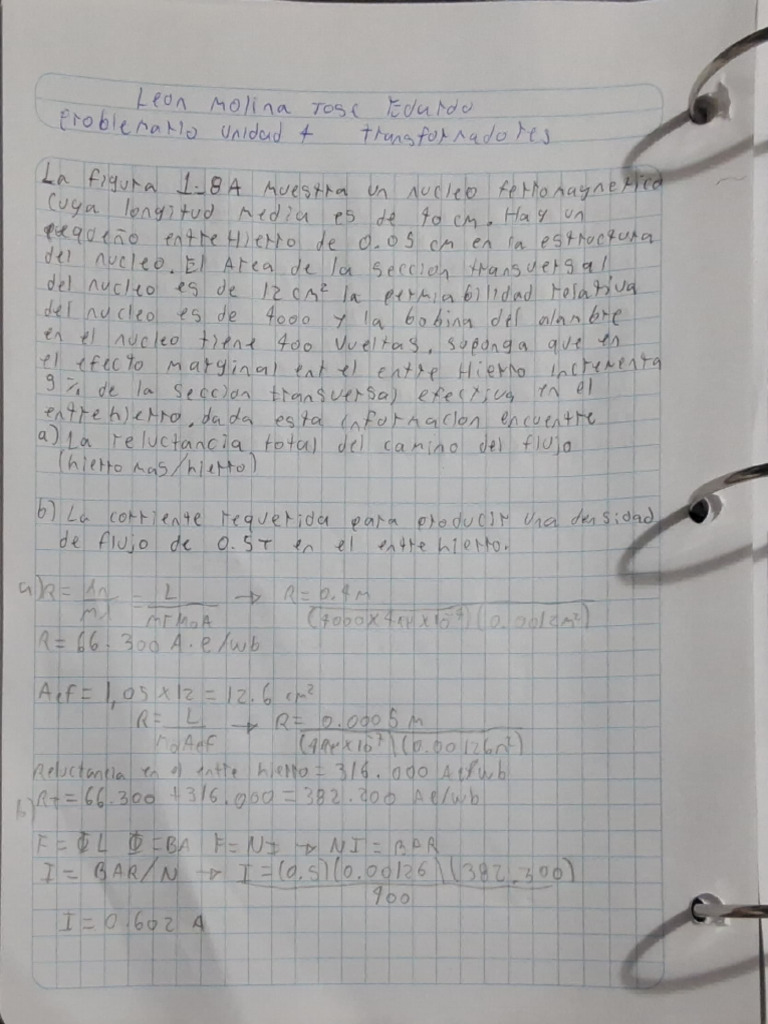 Leon Molina Jose Eduardo
Problemario unidad 1 transformadores
La figura 1-8A muestra un nucleo ferromagnetico
cuya longitud media es de 40 cm. Hay un
pequeño entreHierro de 0.05 cm en la estructura
del nucleo. El Area de la seccion transversal
del nucleo es de 12 cm² la permiabilidad relativa
del nucleo es de 4000 y la bobina del alambre
en el nucleo tiene 400 vueltas. suponga que en
el efecto marginal ent el entre Hierro incrementa
5% de la seccion transversal efectiva en el
entrehierro. dada esta informacion encuentre
a) La reluctancia total del camino del flujo
(hierro mas/hierro)
b) La corriente requerida para producir una densidad
de flujo de 0.5T en el entrehierro.
a) R = = L → R = 0.4 m
MrMoA (4000×4π×10⁻⁷)(0.0012m²)
R = 66.300 A.e/wb
Aef = 1,05 × 12 = 12.6 cm²
R = L → R = 0.0005 m
MoAef (4π×10⁻⁷)(0.00126m²)
Reluctancia en el entre hierro = 316.000 Ae/wb
RT = 66.300 + 316.000 = 382.300 Ae/wb
b)
F = ΦL Φ = BA F = NI → NI = BAR
I = BAR/N → I = (0.5)(0.00126)(382.300)
400
I = 0.602 A